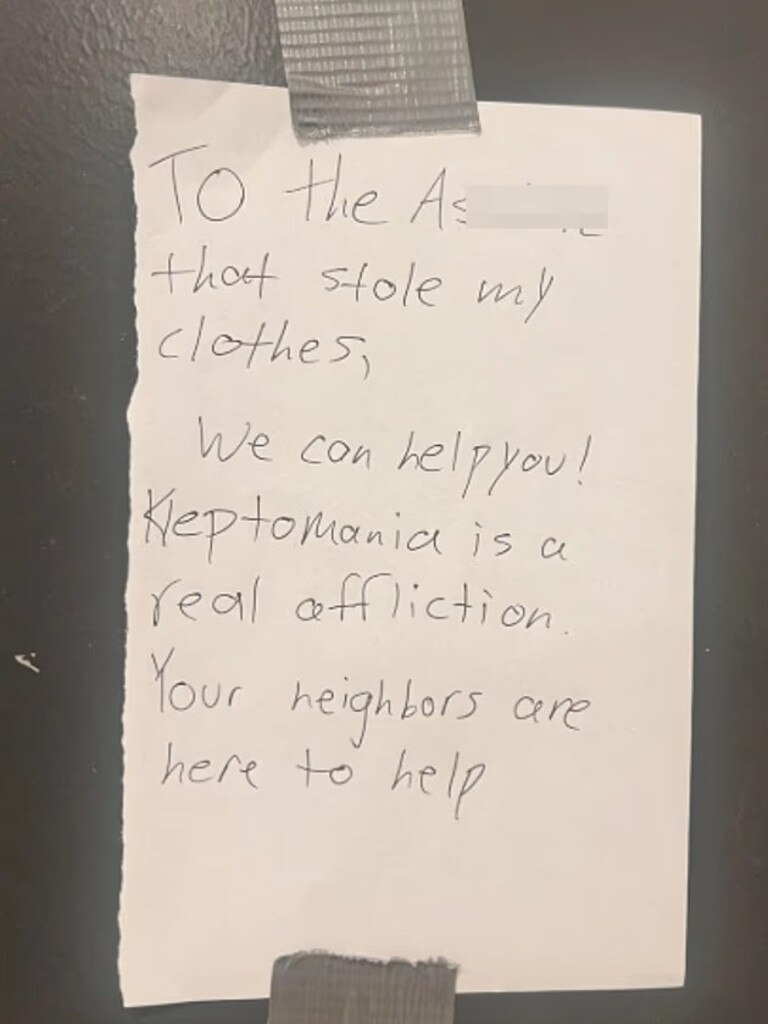 To the
that stole my
clothes,
We can help you!
Kleptomania is a
real affliction.
Your neighbors are
here to help